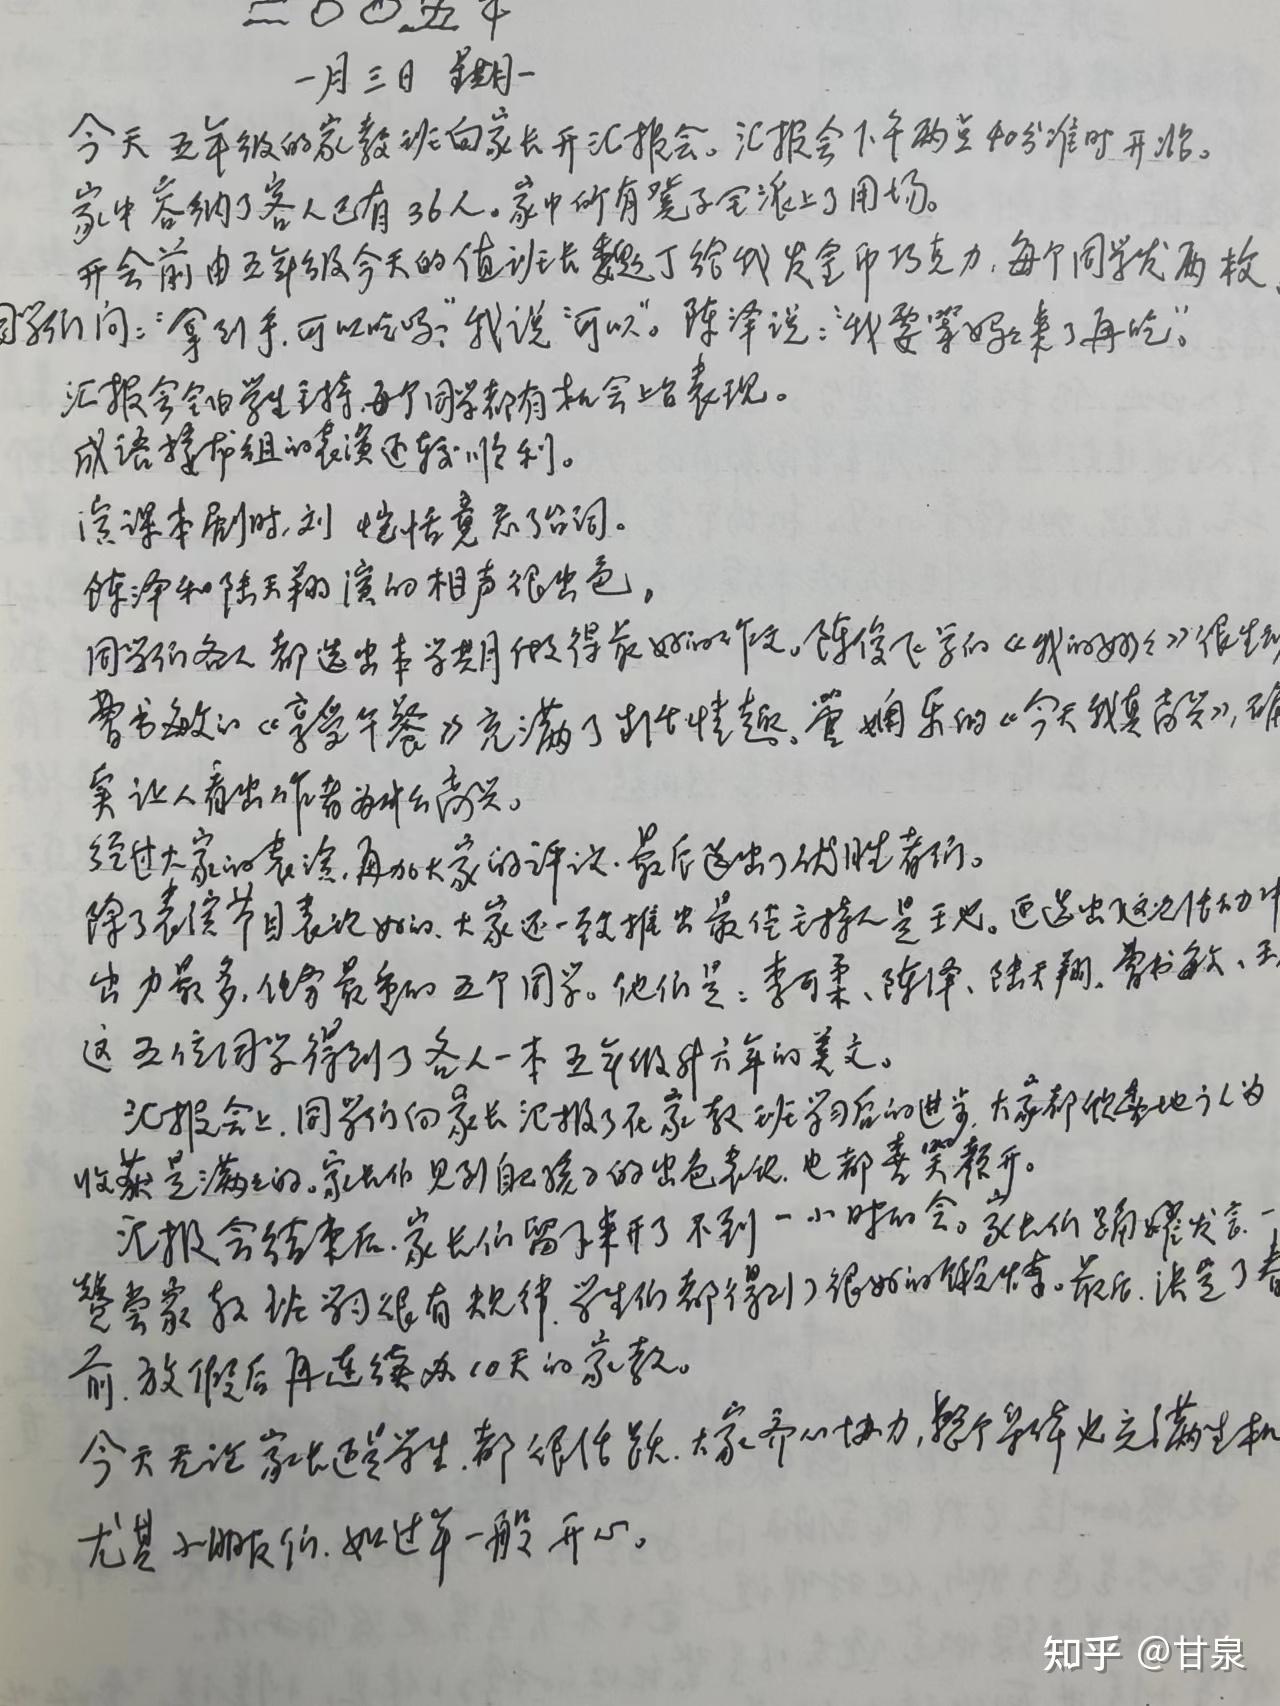 二〇〇五年
一月三日 星期一
今天五年级的家教班向家长开汇报会。汇报会下午两点40分准时开始。
家中容纳了客人已有36人。家中所有凳子全派上了用场。
开会前由五年级今天的值班长魏丁给我发金币巧克力,每个同学发两枚,
同学们问:“拿到手,可以吃吗?”我说“可以”。陈泽说:“我要等妈妈来了再吃”。
汇报会全由学生主持,每个同学都有机会上台表现。
成语接龙组的表演还较顺利。
演课本剧时,刘恺恬竟忘了台词。
陈泽和陆天翔演的相声很出色。
同学们各人都选出本学期做得最好的作文。陈俊飞写的《我的妈妈》很生动
曹书敏的《享受午餐》充满了生活情趣。管娴乐的《今天我真高兴》,确
实让人看出作者为什么高兴。
经过大家的表演,再加大家的评议,最后选出了优胜者们。
除了表演节目表现好的,大家还一致推出最佳主持人是王也。还选出这次活动中
出力最多,任务最重的五个同学。他们是:李可柔、陈泽、陆天翔、曹书敏、王
这五位同学得到了各人一本五年级升六年的美文。
汇报会上,同学们向家长汇报了在家教班学习后的进步,大家都欣喜地认为
收获是满满的。家长们见到自己孩子的出色表现,也都喜笑颜开。
汇报会结束后,家长们留下来开了不到一小时的会。家长们踊跃发言,一
赞赏家教班学习很有规律,学生们都得到了很好的锻炼。最后,决定了春
前,放假后再连续办10天的家教。
今天无论家长还是学生,都很活跃,大家齐心协力,整个集体也充满生机
尤其小朋友们,如过年一般开心。
知乎 @甘泉